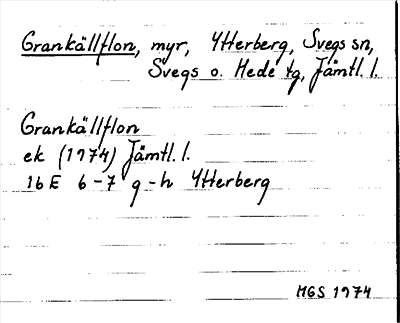 Grankällflon, myr, Ytterberg, Svegs sn,
Svegs o. Hede tg, Jämtl. l.
Grankällflon
ek (1974) Jämtl. l.
16E 6-7 g-h Ytterberg
MGS 1974